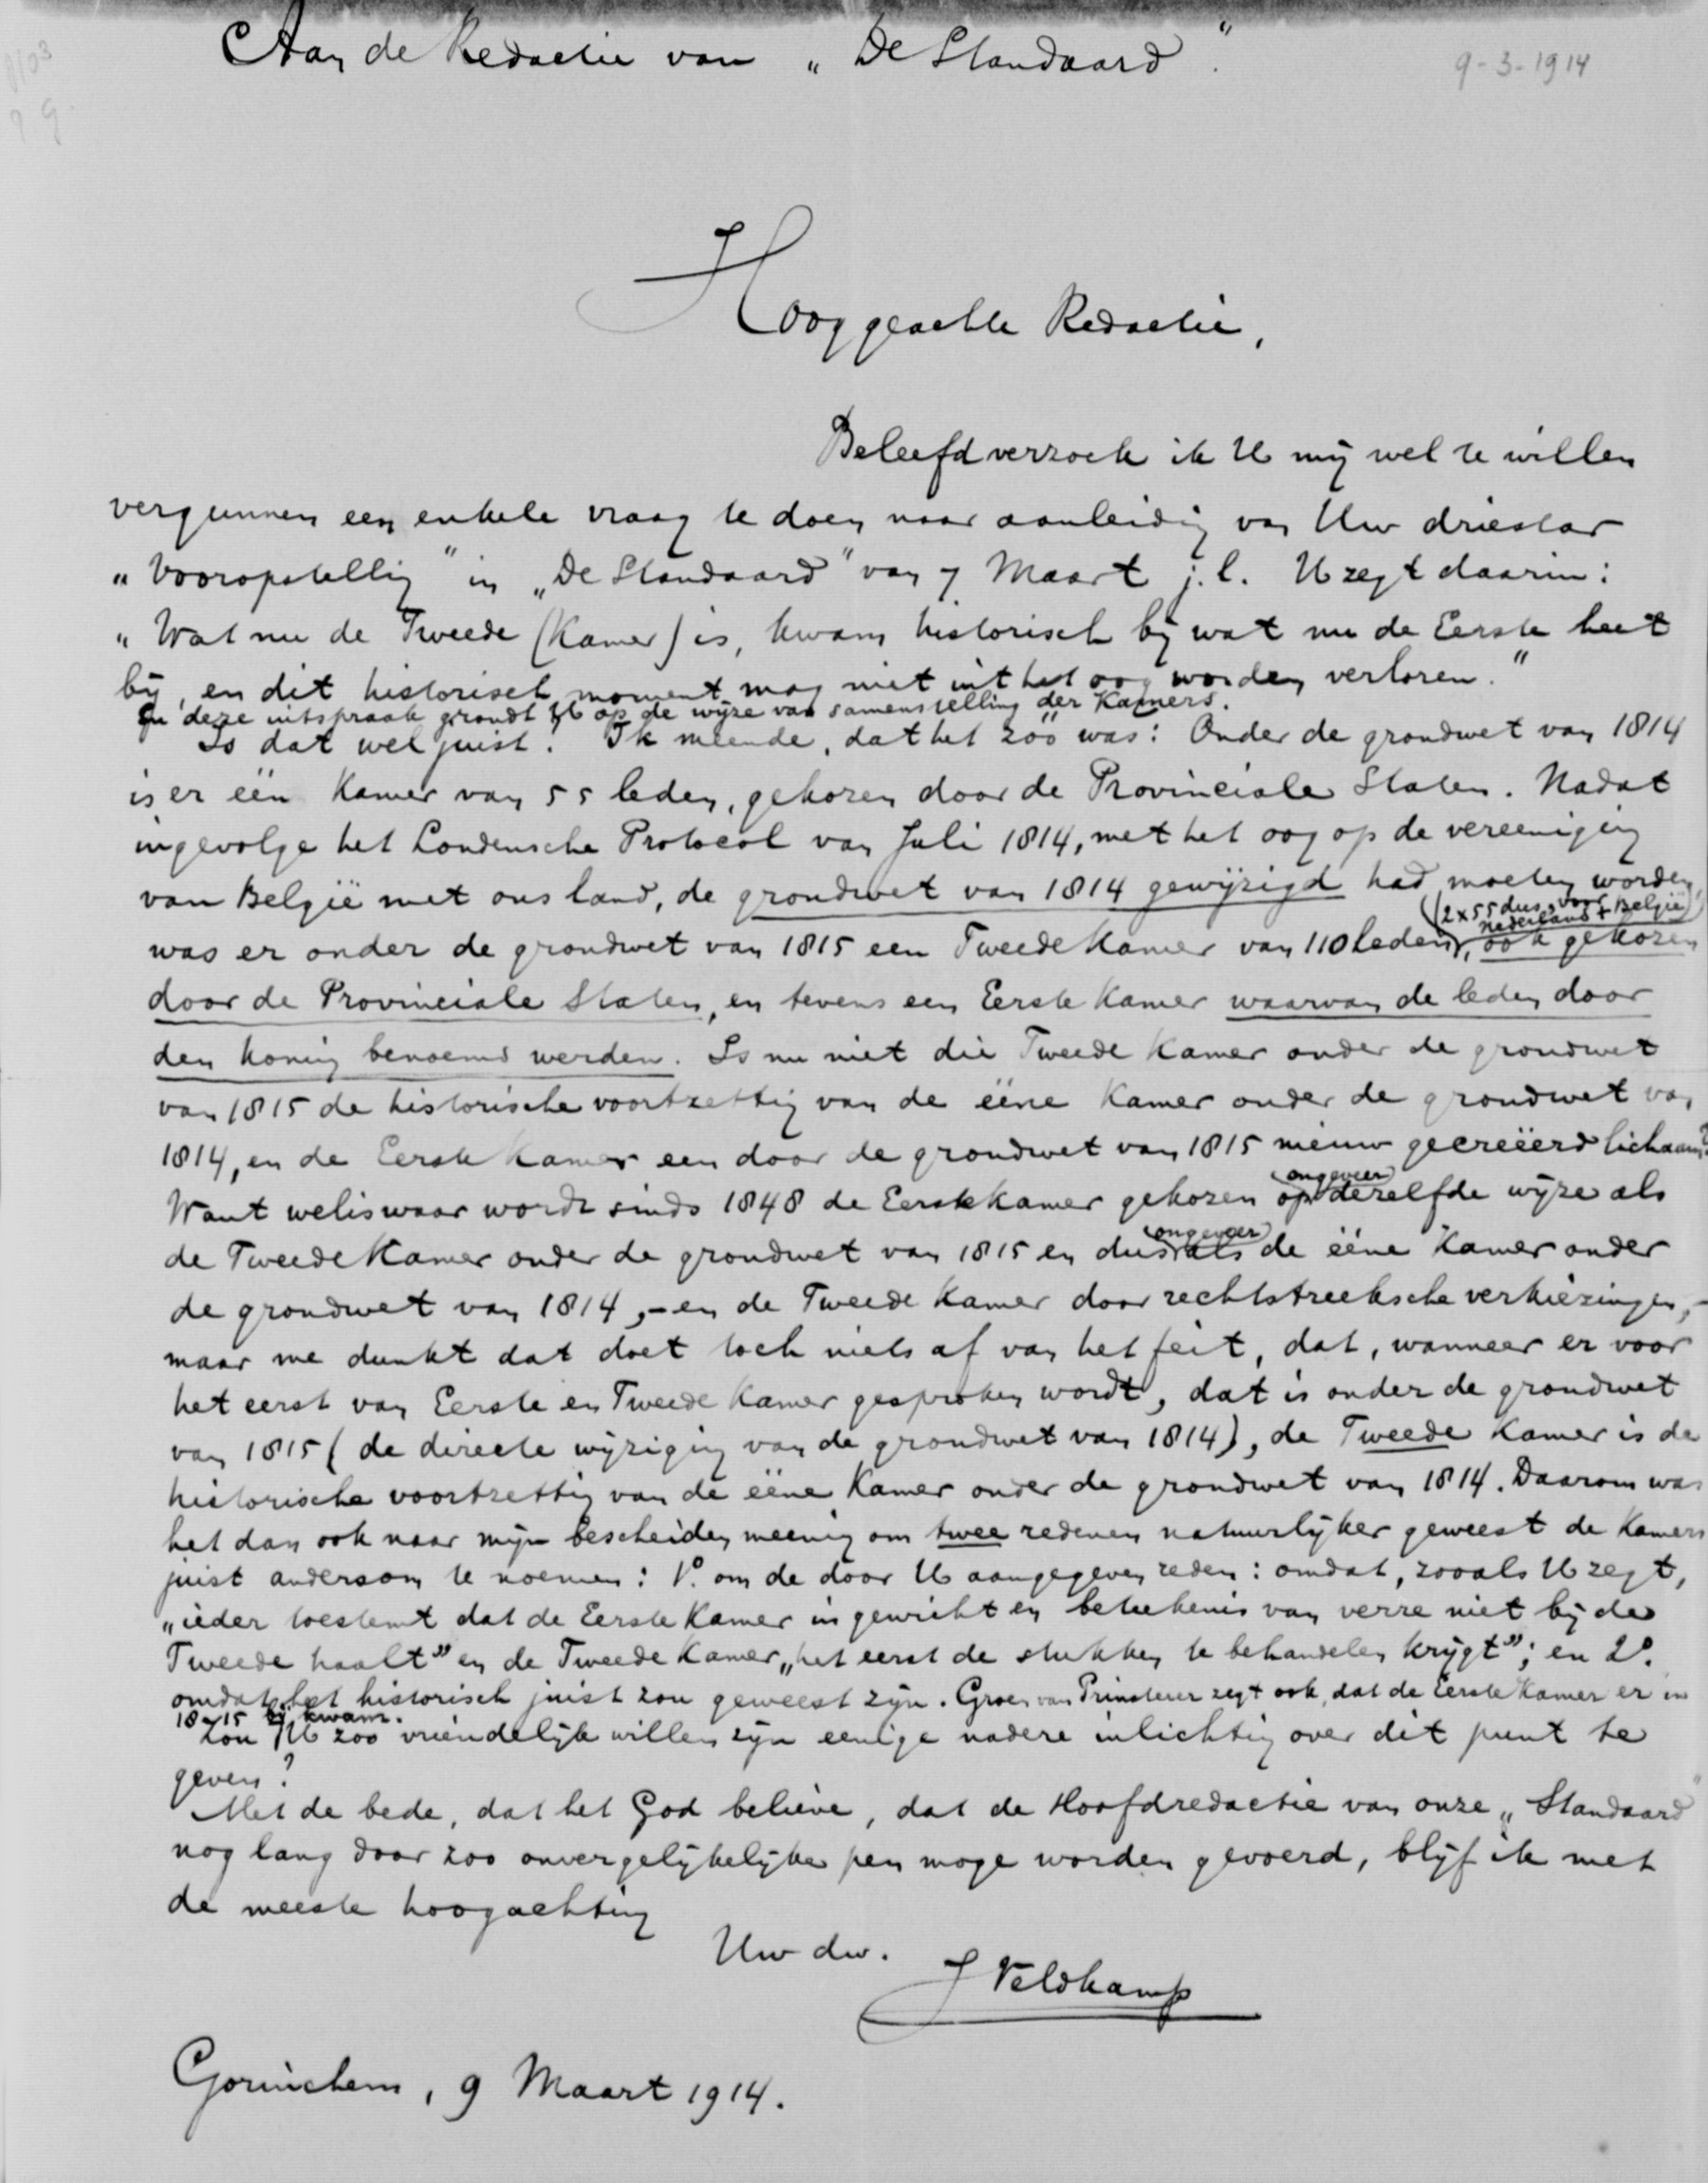 Aan de Redactie van „De Standaard".
9-3-1914
Hooggeachte Redactie,
Beleefd verzoek ik U mij wel te willen
vergunnen een enkele vraag te doen naar aanleiding van Uw driestar
„Vooropstelling" in „De Standaard" van 7 Maart j.l. U zegt daarin:
„Wat nu de Tweede (Kamer) is, kwam historisch bij wat nu de Eerste heet
bij, en dit historisch moment mag niet uit het oog worden verloren."
En deze uitspraak grondt U op de wijze van samenstelling der Kamers.
Is dat wel juist? Ik meende, dat het zóó was: Onder de grondwet van 1814
is er één Kamer van 55 leden, gekozen door de Provinciale Staten. Nadat
ingevolge het Londensche Protocol van Juli 1814, met het oog op de vereeniging
van België met ons land, de grondwet van 1814 gewijzigd had moeten worden,
(2x55 dus, voor
Nederland + België)
was er onder de grondwet van 1815 een Tweede Kamer van 110 leden, ook gekozen
door de Provinciale Staten, en tevens een Eerste Kamer waarvan de leden door
den koning benoemd werden. Is nu niet die Tweede Kamer onder de grondwet
van 1815 de historische voortzetting van de ééne Kamer onder de grondwet van
1814, en de Eerste Kamer een door de grondwet van 1815 nieuw gecreëerd lichaam?
ongeveer
Want weliswaar wordt sinds 1848 de Eerste Kamer gekozen op dezelfde wijze als
ongeveer
de Tweede Kamer onder de grondwet van 1815 en dus als de ééne Kamer onder
de grondwet van 1814, – en de Tweede Kamer door rechtstreeksche verkiezingen, –
maar me dunkt dat doet toch niets af van het feit, dat, wanneer er voor
het eerst van Eerste en Tweede Kamer gesproken wordt, dat is onder de grondwet
van 1815 (de directe wijziging van de grondwet van 1814), de Tweede Kamer is de
historische voortzetting van de ééne Kamer onder de grondwet van 1814. Daarom was
het dan ook naar mijn bescheiden meening om twee redenen natuurlijker geweest de Kamers
juist andersom te noemen: 1º. om de door U aangegeven reden: omdat, zooals U zegt,
„ieder toestemt dat de Eerste Kamer in gewicht en beteekenis van verre niet bij de
Tweede haalt" en de Tweede Kamer „het eerst de stukken te behandelen krijgt"; en 2º.
omdat het historisch juist zou geweest zijn. Groen van Prinsterer zegt ook, dat de Eerste Kamer er in
1815 bij kwam.
Zou U zoo vriendelijk willen zijn eenige nadere inlichting over dit punt te
geven?
Met de bede, dat het God believe, dat de Hoofdredactie van onze „Standaard"
nog lang door zoo onvergelijkelijke pen moge worden gevoerd, blijf ik met
de meeste hoogachting
Uw dw.
J Veldkamp
Gorinchem, 9 Maart 1914.